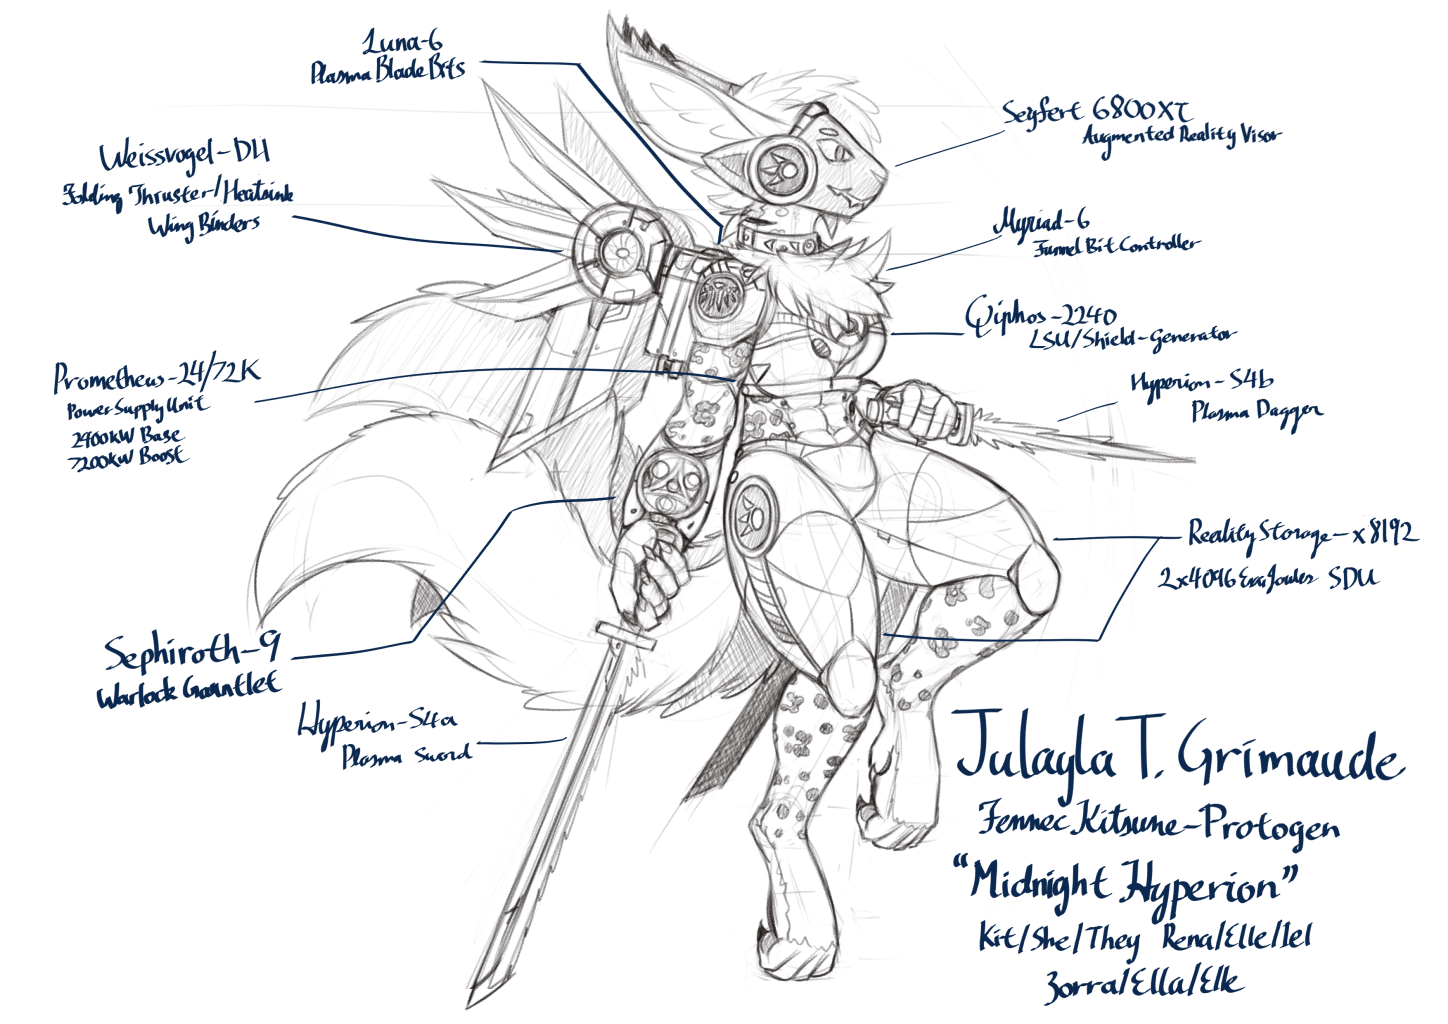 Luna-6
Plasma Blade Bits
Weissvogel-DH
Folding Thruster/Heatsink
Wing Binders
Prometheus-24/72K
Power Supply Unit
2400kW Base
7200kW Boost
Sephiroth-9
Warlock Gauntlet
Hyperion-S4a
Plasma Sword
Seyfert 6800XT
Augmented Reality Visor
Myriad-6
Funnel Bit Controller
Qiphos-2240
LSU/Shield-Generator
Hyperion-S4b
Plasma Dagger
Reality Storage-x8192
2x4096 ExaJoules SDU
Julayla T. Grimaude
Fennec Kitsune-Protogen
"Midnight Hyperion"
Kit/She/They Rena/Elle/Iel
Zorra/Ella/Elle